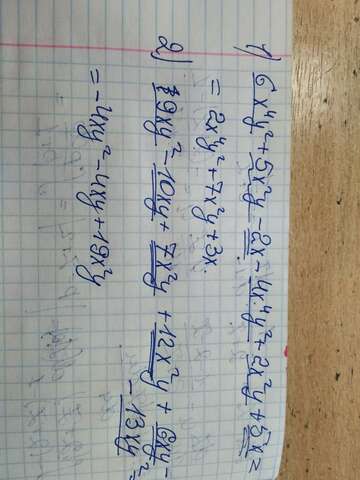 1) 6x⁴y²+5x²y-2x-4x⁴y²+2x²y+5x=
=2x⁴y²+7x²y+3x.
2) 9xy²-10xy+7x²y+12x²y+6xy-
-13xy²=
=-4xy²-4xy+19x²y